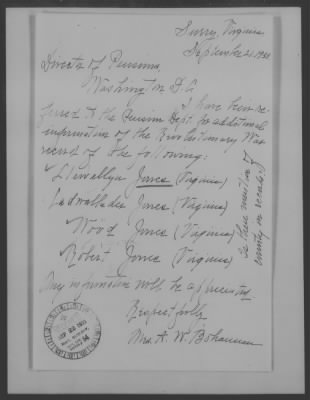 Surry, Virginia
September 21, 1931
Director of Pensions,
Washington D.C.
I have been re-
ferred to the Pension Dept. for additional
information of the Revolutionary War
record of the following:
Llewellyn Jones (Virginia)
Cadwallader Jones (Virginia)
Wood Jones (Virginia)
Robert Jones (Virginia)
Is there mention of
county on records?
Any information will be appreciated
Respectfully
Mrs. A. W. Bohannan